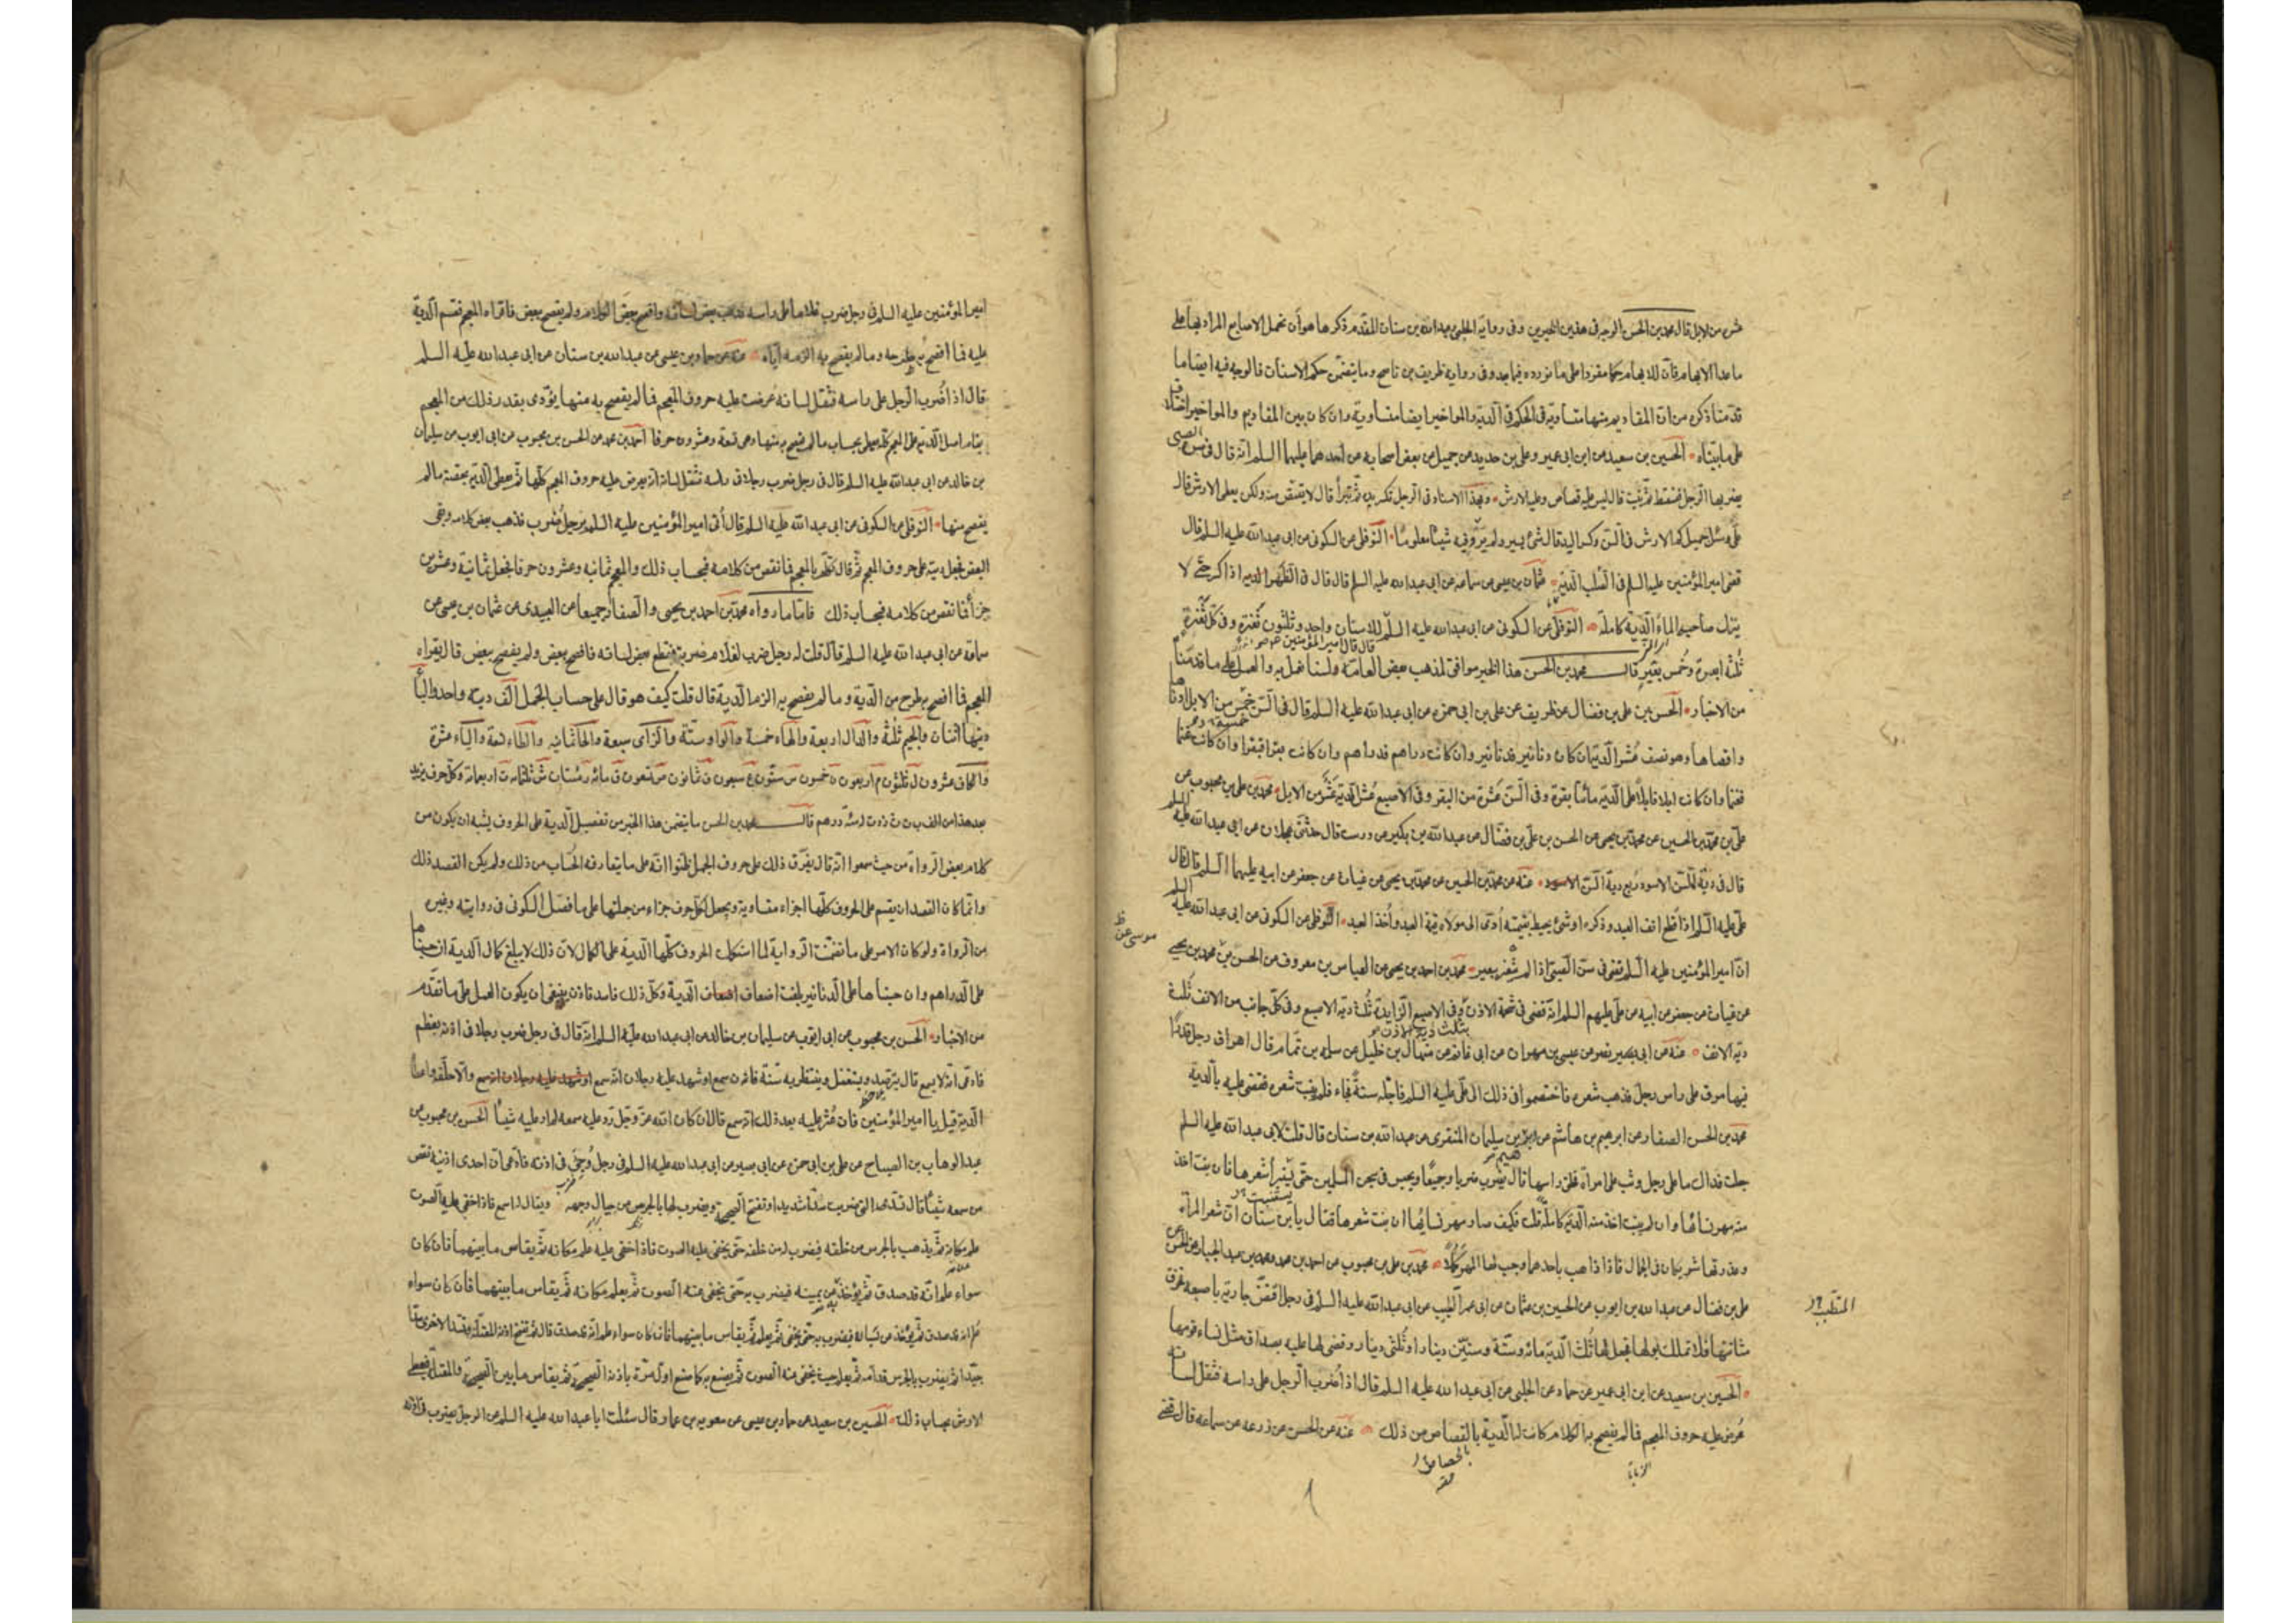 عشر من الابل قال محمد بن الحسن الوجه فى هذين الخبرين وفى رواية الحلبى وعبدالله بن سنان المقدم ذكرها هو أن نحمل الاصابع المراد بها على
ما عدا الابهام فان للابهام حكما مفردا على ما نورده فيما بعد وفى رواية ظريف بن ناصح وما يتضمن حكم الاسنان فالوجه فيه ايضا ما
قدمنا ذكره من ان المقاديم منها متساوية فى الحكم فى الدية والمواخير ايضا متساوية وان كان بين المقاديم والمواخير اختلاف
على ما بيناه الحسين بن سعيد عن ابن ابى عمير وعلى بن حديد عن جميل عن بعض اصحابه عن احدهما عليهما السلم انه قال فى سن الصبى
يضربها الرجل فتسقط ثم تنبت قال ليس عليه قصاص وعليه الارش وبهذا الاسناد فى الرجل تكسر يده ثم تبرأ قال لا يقتص منه ولكن يعطى الارش قال
على وسئل جميل كم الارش فى السن وكسر اليد قال شئ يسير ولم يرو فيه شيئا معلوما النوفلى عن السكونى عن ابى عبد الله عليه السلم قال
قضى امير المؤمنين عليه السلم فى الصلب الدية عثمان بن عيسى عن سماعة عن ابى عبد الله عليه السلم قال قال فى الظهر الدية اذا كسر حتى لا
ينزل صاحبه الماء الدية كاملة النوفلى عن السكونى عن ابى عبد الله عليه السلم للاسنان واحد وثلثون ثغرة وفى كل ثغرة
قال قال امير المؤمنين
ثلثة ابعرة وخمس بعير قال محمد بن الحسن هذا الخبر موافق لمذهب بعض العامة ولسنا نعمل به والعمل على ما قدمنا
من الاخبار الحسن بن على بن فضال عن ظريف عن على بن ابى حمزة عن ابى عبد الله عليه السلم قال فى السن خمس من الابل ادناها
واقصاها وهو نصف عشر الدية ان كان دنانير فدنانير وان كانت دراهم فدراهم وان كانت بقرا فبقرا وان كانت غنما
فغنما وان كانت ابلا فابلا على الدية مائتا بقرة وفى السن عشرة من البقر وفى الاصبع عشر الدية عشر من الابل محمد بن على بن محبوب عن
على بن محمد بن الحسين عن محمد بن يحيى عن الحسن بن على بن فضال عن عبد الله بن بكير عن درست قال حدثنى عجلان عن ابى عبد الله عليه السلم
قال فى دية السن الاسود ربع دية السن الاسود عنه عن محمد بن الحسين عن محمد بن يحيى عن غياث عن جعفر عن ابيه عليهما السلم قال قال
على عليه السلم اذا قطع انف العبد وذكره او شئ يحيط بقيمته أدى الى مولاه قيمة العبد وأخذ العبد النوفلى عن السكونى عن ابى عبد الله عليه السلم
موسى عن ظ
ان امير المؤمنين عليه السلم قضى فى سن الصبى اذا لم يثغر بعير محمد بن احمد بن يحيى عن العباس بن معروف عن الحسن بن محمد بن يحيى
عن غياث عن جعفر عن ابيه عن على عليهم السلم انه قضى فى شحمة الاذن وفى الاصبع الزايدة ثلث دية الاصبع وفى كل جانب من الانف ثلث
بثلث دية الاذن
دية الانف عنه عن ابى بصير نصر عن عيسى بن مهران عن ابى غانم عن منهال بن خليل عن سلمه بن تمام قال اهراق رجل قدرا
فيها مرق على راس رجل فذهب شعره فاختصموا فى ذلك الى على عليه السلم فاجله سنة فجاء فلم ينبت شعره فقضى عليه بالدية
محمد بن الحسن الصفار عن ابراهيم بن هاشم عن سليمان المنقرى عن عبد الله بن سنان قال قلت لابى عبد الله عليه السلم
جعلت فداك ما على رجل وثب على امرأة فحلق راسها قال يضرب ضربا وجيعا ويحبس فى سجن المسلمين حتى يستبرأ شعرها فان نبت اخذ
منه مهر نسائها وان لم ينبت اخذ منه الدية كاملة قلت فكيف صار مهر نسائها ان نبت شعرها فقال يا بن سنان ان شعر المرأة
وعذرتها شريكان فى الجمال فاذا ذهب باحدهما وجب لها المهر كملا محمد بن على بن محبوب عن احمد بن محمد ومحمد بن عبد الجبار عن الحسن بن
على بن فضال عن عبد الله بن ايوب عن الحسين بن عثمان عن ابى عمر الطبيب عن ابى عبد الله عليه السلم فى رجل اقتض جارية باصبعه فخرق
المتطبب
مثانتها فلا تملك بولها فجعل لها ثلث الدية مائة وستة وستين دينارا وثلثى دينار وقضى لها عليه بصداق مثل نساء قومها
الحسين بن سعيد عن ابن ابى عمير عن حماد عن الحلبى عن ابى عبد الله عليه السلم قال اذا ضرب الرجل على راسه فثقل لسانه
عرض عليه حروف المعجم فما لم يفصح به الكلام كانت له الدية بالقصاص من ذلك عنه عن الحسن عن زرعه عن سماعه قال قضى
امير المؤمنين عليه السلم فى رجل ضرب غلاما على راسه فذهب بعض لسانه وافصح ببعض الكلام ولم يفصح ببعض فاقراه المعجم فقسم الدية
عليه فما افصح به طرحه وما لم يفصح به الزمه اياه عنه عن حماد بن عيسى عن عبد الله بن سنان عن ابى عبد الله عليه السلم
قال اذا ضرب الرجل على راسه فثقل لسانه عرضت عليه حروف المعجم فما لم يفصح به منها يؤدى بقدر ذلك من المعجم
يقام اصل الدية على المعجم كله يعطى بحساب ما لم يفصح به منها وهى تسعة وعشرون حرفا احمد بن محمد عن الحسن بن محبوب عن ابى ايوب عن سليمان
بن خالد عن ابى عبد الله عليه السلم قال فى رجل ضرب رجلا فى راسه فثقل لسانه انه يعرض عليه حروف المعجم كلها ثم يعطى الدية بحصة ما لم
يفصح منها النوفلى عن السكونى عن ابى عبد الله عليه السلم قال أتى امير المؤمنين عليه السلم برجل ضرب فذهب بعض كلامه وبقى
البعض فجعل ديته على حروف المعجم ثم قال تكلم بالمعجم فما نقص من كلامه فبحساب ذلك والمعجم ثمانيه وعشرون حرفا فجعل ثمانية وعشرين
جزأ فما نقص من كلامه فبحساب ذلك فاما ما رواه محمد بن احمد بن يحيى والصفار جميعا عن العبيدى عن عثمان بن عيسى عن
سماعة عن ابى عبد الله عليه السلم قال قلت له رجل ضرب لغلام ضربة فقطع بعض لسانه فافصح ببعض ولم يفصح ببعض قال يقراه
المعجم فما افصح به طرح من الدية وما لم يفصح به الزم الدية قال قلت كيف هو قال على حساب الجمل الف ديته واحد والباء
ديتها اثنان والجيم ثلثة والدال اربعة والهاء خمسة والواو ستة والزاى سبعة والحا ثمانيه والطاء تسعة والياء عشرة
والكاف عشرون ل ثلثون م اربعون ن خمسون س ستون ع سبعون ف ثمانون ص تسعون ق مائه ر مئتان ش ثلثمائه ت اربعمائة وكل حرف يزيد
بعد هذا من الف ب ت ث زدت له مائة درهم قال محمد بن الحسن ما يتضمن هذا الخبر من تفصيل الدية على الحروف يشبه ان يكون من
كلام بعض الرواة من حيث سمعوا انه قال يفرق ذلك على حروف الجمل ظنوا انه على ما يتعارفه الحساب من ذلك ولم يكن القصد ذلك
وانما كان القصد ان يقسم على الحروف كلها اجزاء متساوية ويجعل لكل حرف جزاء من جملتها على ما فصل السكونى فى روايته وغيره
من الرواة ولو كان الامر على ما تضمنت الرواية لما استكملت الحروف كلها الدية على الكمال لان ذلك لا يبلغ كمال الدية ان حسبناها
على الدراهم وان حسبناها على الدنانير بلغت اضعاف اضعاف الدية وكل ذلك فاسد فاذن ينبغى ان يكون العمل على ما تقدم
من الاخبار الحسن بن محبوب عن ابى ايوب عن سليمان بن خالد عن ابى عبد الله عليه السلم انه قال فى رجل ضرب رجلا فى اذنه بعظم
فادعى انه لا يسمع قال يترصد ويستغفل وينتظر به سنة فان سمع او شهد عليه رجلان انه سمع او شهد عليه رجلان انه سمع والا حلفه واعطاه
الدية قيل يا امير المؤمنين فان عثر عليه بعد ذلك انه سمع قال ان كان الله عز وجل رد عليه سمعه لم ار عليه شيئا الحسن بن محبوب عن
عبد الوهاب بن الصباح عن على بن ابى حمزة عن ابى بصير عن ابى عبد الله عليه السلم فى رجل وجئ فى اذنه فادعى ان احدى اذنيه نقص
من سمعه شيئا قال تسد التى ضربت سدا شديدا وتفتح الصحيحة ويضرب لها بالجرس من حيال وجهه ويقال له اسمع فاذا خفى عليه الصوت
علم مكانه ثم يذهب بالجرس من خلفه فيضرب له من خلفه حتى يخفى عليه الصوت فاذا خفى عليه علم مكانه ثم يقاس ما بينهما فان كان
سواء علم انه قد صدق ثم يؤخذ عن يمينه فيضرب به حتى يخفى عنه الصوت ثم يعلم مكانه ثم يقاس ما بينهما فان كان سواء
علم انه قد صدق ثم يؤخذ عن يساره فيضرب به حتى يخفى ثم يعلم ثم يقاس ما بينهما فان كان سواء علم انه قد صدق قال ثم تفتح اذنه المعتلة وتسد الاخرى سدا
جيدا ثم يضرب بالجرس قدامه ثم يعلم حيث يخفى عنه الصوت ثم يصنع به كما صنع اول مرة باذنه الصحيحة ثم يقاس ما بين الصحيحة والمعتلة فيعطى
الارش بحساب ذلك الحسين بن سعيد عن حماد بن عيسى عن معويه بن عمار قال سئلت ابا عبد الله عليه السلم عن الرجل يضرب فى اذنه